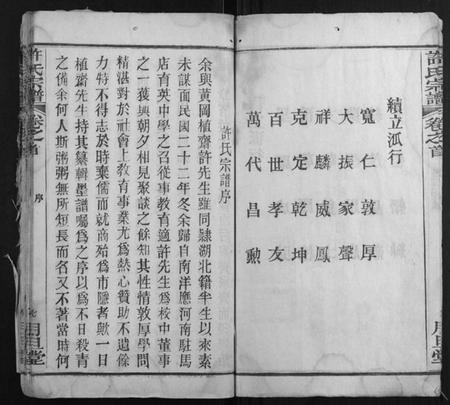 許氏宗譜 卷之首
續立派行
寬仁敦厚
大振家聲
祥麟威鳳
克定乾坤
百世孝友
萬代昌勳
許氏宗譜序
余與黃岡植齋許先生雖同隸湖北籍半生以來素
未謀面民國二十二年冬余歸自南洋應河南駐馬
店育英中學之召從事教育適許先生爲校中董事
之一獲與朝夕相見聚談之餘知其性情敦厚學問
精湛對於社會上教育事業尤爲熱心贊助不遺餘
力特不得志於時棄儒而就商殆爲市隱者歟一日
植齋先生持其纂輯墨譜囑爲之序以爲不日殺青
之備余何人斯粥粥無所短長而名又不著當時何
許氏宗譜 卷之首
序
七